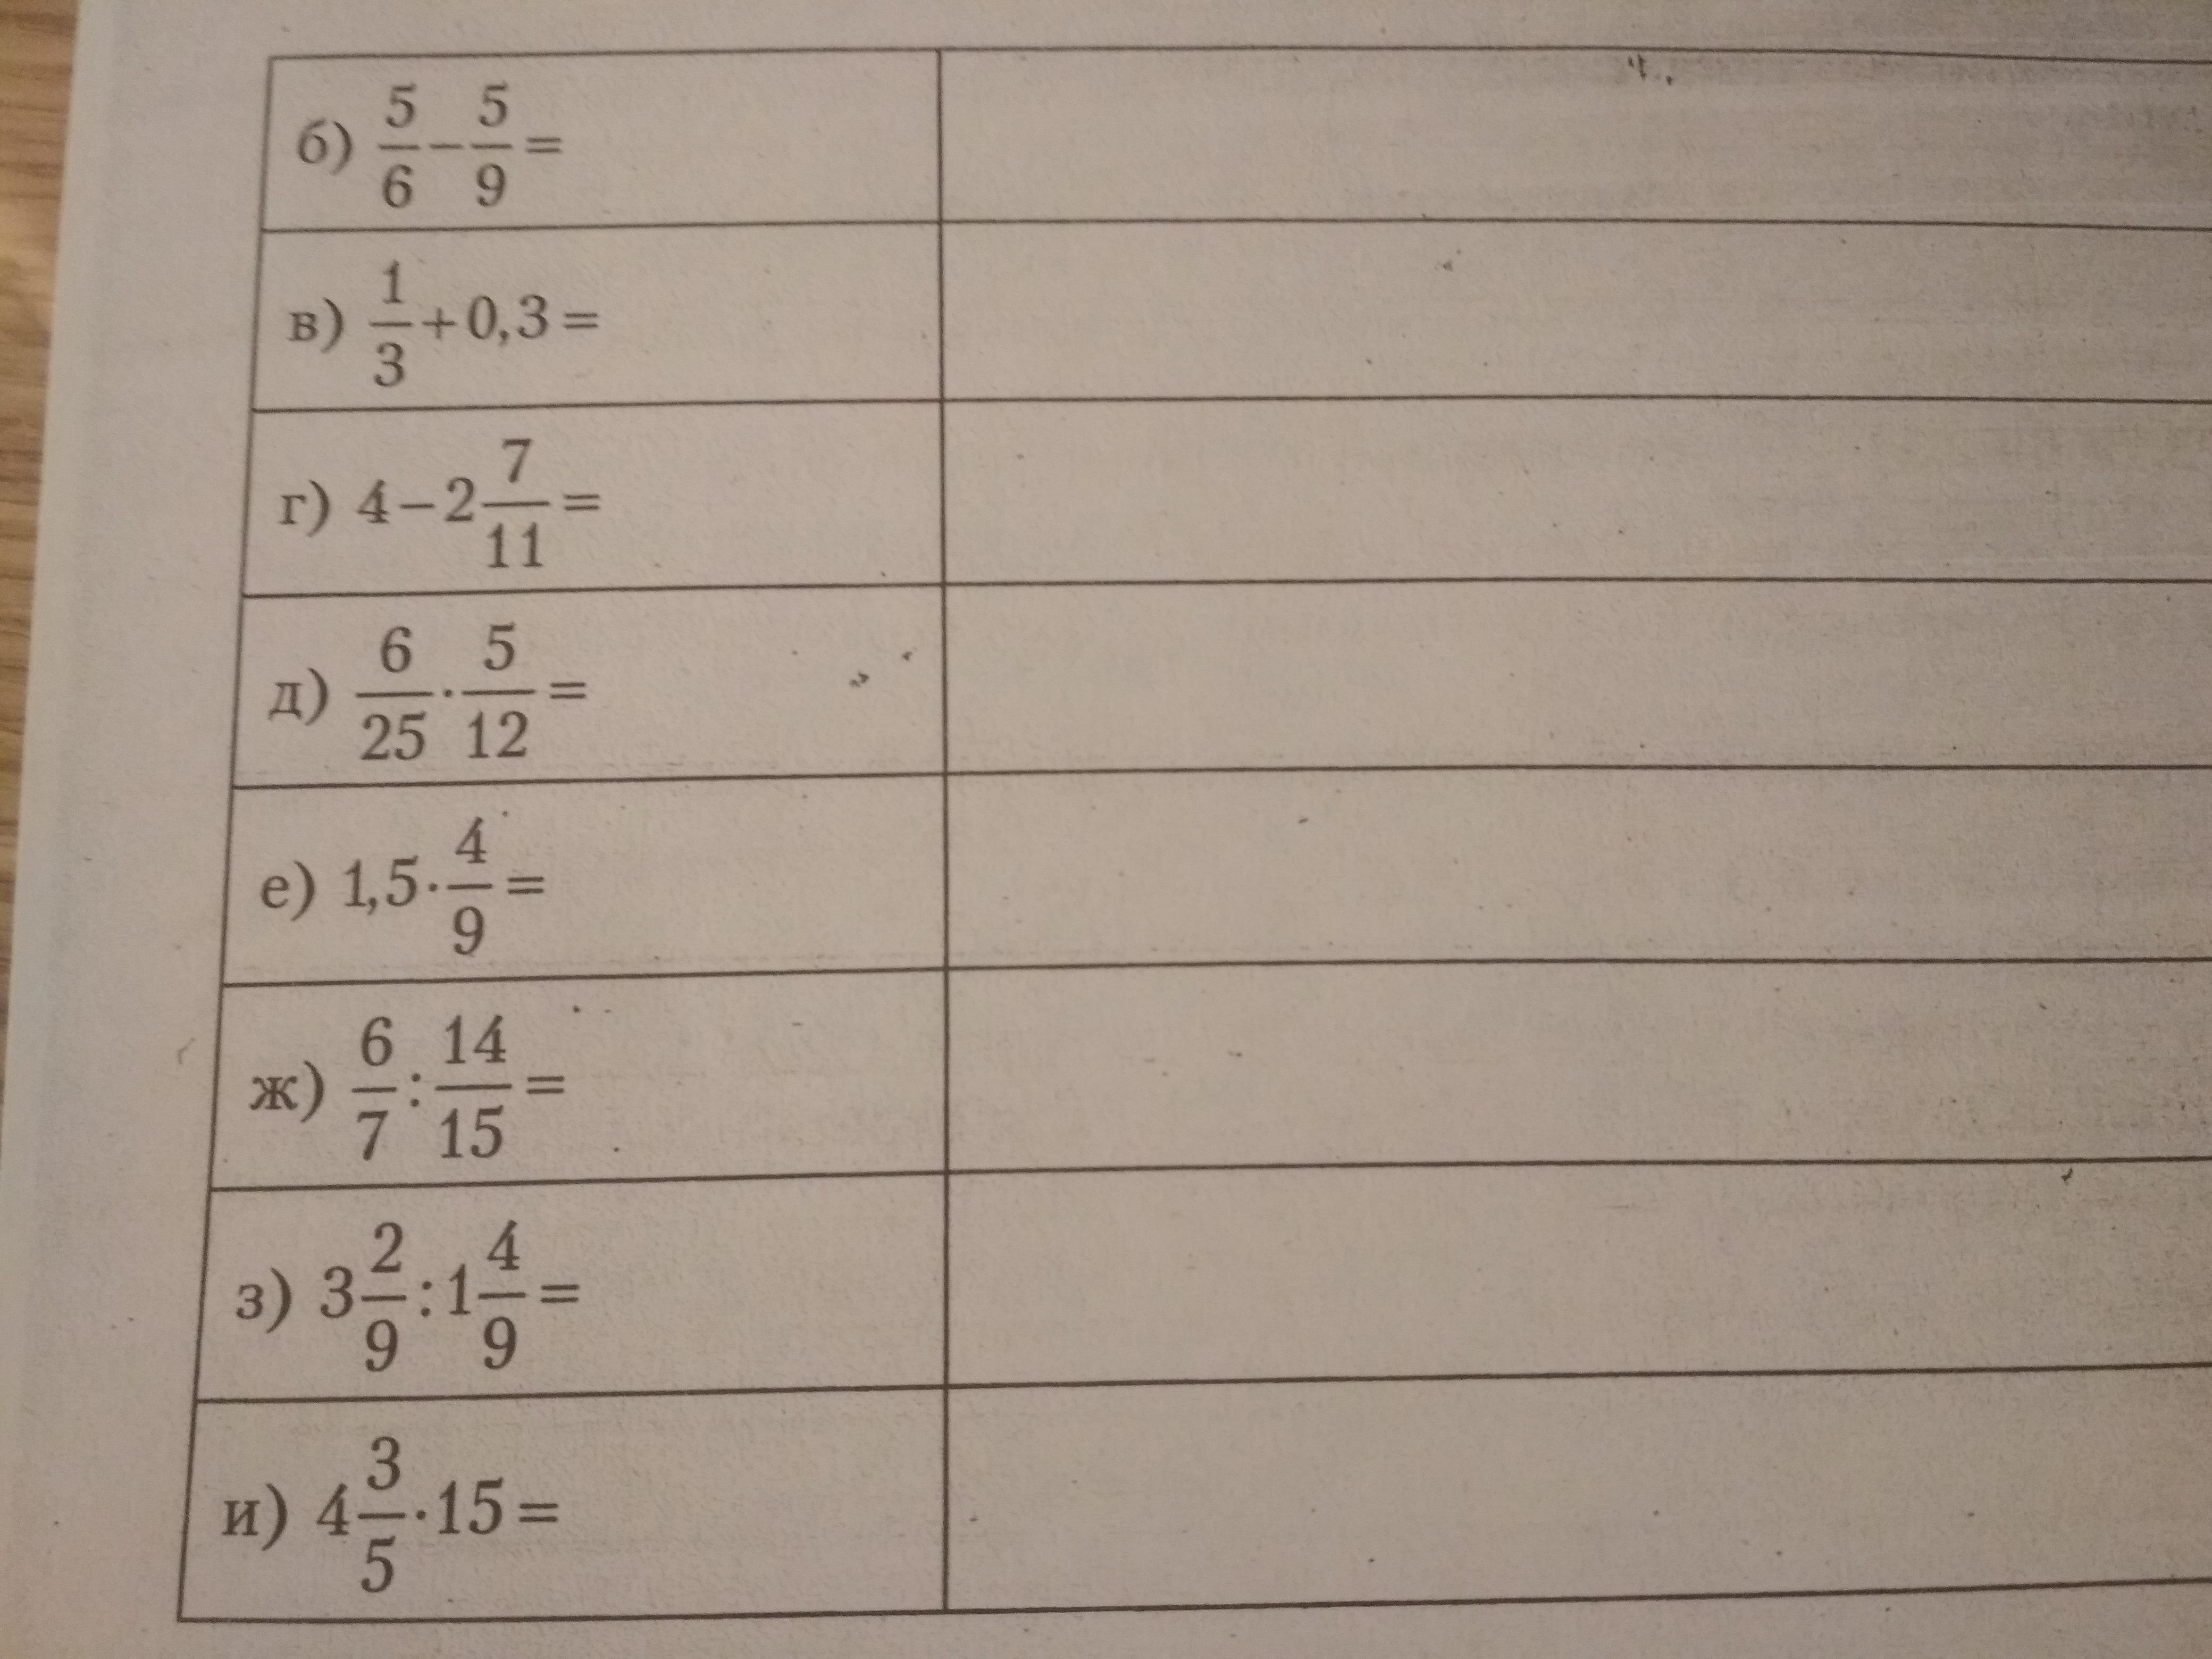 б) 5/6 − 5/9 =
в) 1/3 + 0,3 =
г) 4 − 2 7/11 =
д) 6/25 · 5/12 =
е) 1,5 · 4/9 =
ж) 6/7 : 14/15 =
з) 3 2/9 : 1 4/9 =
и) 4 3/5 · 15 =